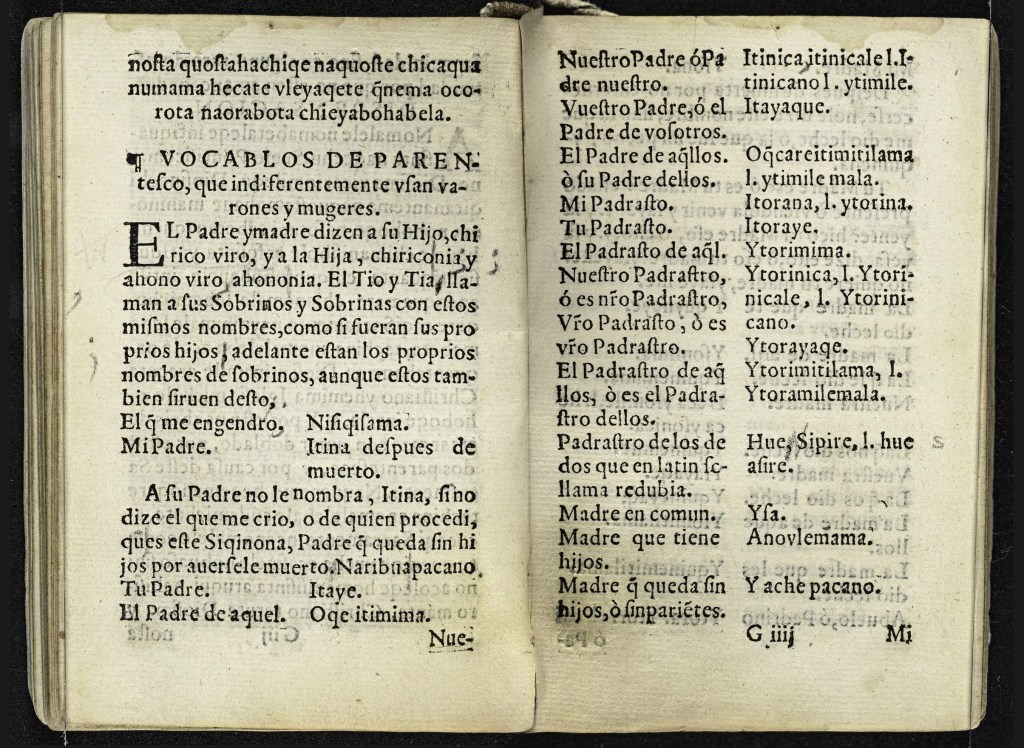 noſta quoſtahachiqe naquoſte chicaqua
numama hecate vleyaqete q̄nema oco-
rota naorabota chieyabohabela.
¶ VOCABLOS DE PAREN-
teſco, que indiferentemente vſan va-
rones y mugeres.
EL Padre ymadre dizen a ſu Hijo, chi
rico viro, y a la Hija, chiriconia, y
ahono viro, ahononia. El Tio y Tia, lla-
man a ſus Sobrinos y Sobrinas con eſtos
miſmos nombres, como ſi fueran ſus pro
prios hijos, adelante eſtan los proprios
nombres de ſobrinos, aunque eſtos tam-
bien ſiruen deſto,
El q̄ me engendro. Niſiqiſama.
Mi Padre. Itina deſpues de
muerto.
A ſu Padre no le nombra, Itina, ſino
dize el que me crio, o de quien procedi,
ques eſte Siqinona, Padre q̄ queda ſin hi
jos por auerſele muerto. Naribuapacano.
Tu Padre. Itaye.
El Padre de aquel. Oqe itimima.
Nue-
Nueſtro Padre ó Pa Itinica, itinicale l. I-
dre nueſtro. tinicano l. ytimile.
Vueſtro Padre, ó el Itayaque.
Padre de voſotros.
El Padre de aq̄llos. Oq̄careitimitilama
ò ſu Padre dellos. l. ytimile mala.
Mi Padraſto. Itorana, l. ytorina.
Tu Padraſto. Itoraye.
El Padraſto de aq̄l. Ytorimima.
Nueſtro Padraſtro, Ytorinica, l. Ytori-
ó es nr̄o Padraſtro, nicale, l. Ytorini-
Vr̄o Padraſto, ò es cano.
vr̄o Padraſtro. Ytorayaqe.
El Padraſtro de aq̄ Ytorimitilama, l.
llos, ò es el Padra- Ytoramilemala.
ſtro dellos.
Padraſtro de los de Hue, Sipire, l. hue s
dos que en latin ſe- aſire.
llama redubia.
Madre en comun. Yſa.
Madre que tiene Anovlemama.
hijos.
Madre q̄ queda ſin Yache pacano.
hijos, ò ſinpariētes.
G iiij Mi